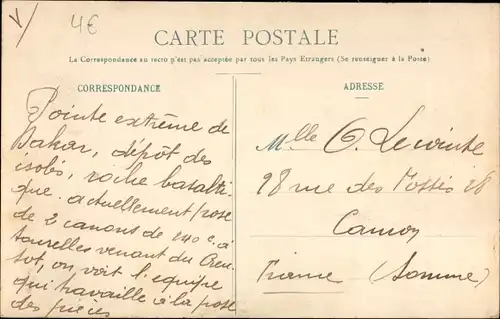 4€
CARTE POSTALE
La Correspondance au recto n'est pas acceptée par tous les Pays Etrangers (Se renseigner à la Poste)
CORRESPONDANCE
Pointe extrême de
Dakar, dépôt des
isolés, roche basalti-
que. actuellement pose
de 2 canons de 240 c. à
tourelles venant du Creu-
sot, on voit l'équipe
qui travaille à la pose
des pièces
ADRESSE
Mlle G. Lecointe
28 rue des
Camon
France (Somme)